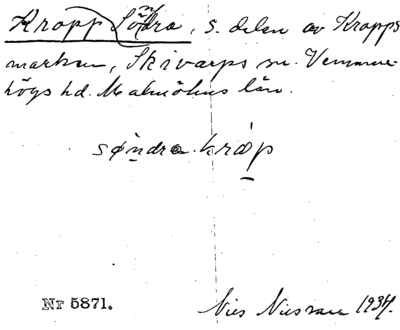 Kropp Södra, s. delen av Kropps
marken, Skivarps sn. Vemmen-
högs hd. Malmöhus län.
söndra kråp
Nr 5871.
Nils 1934.